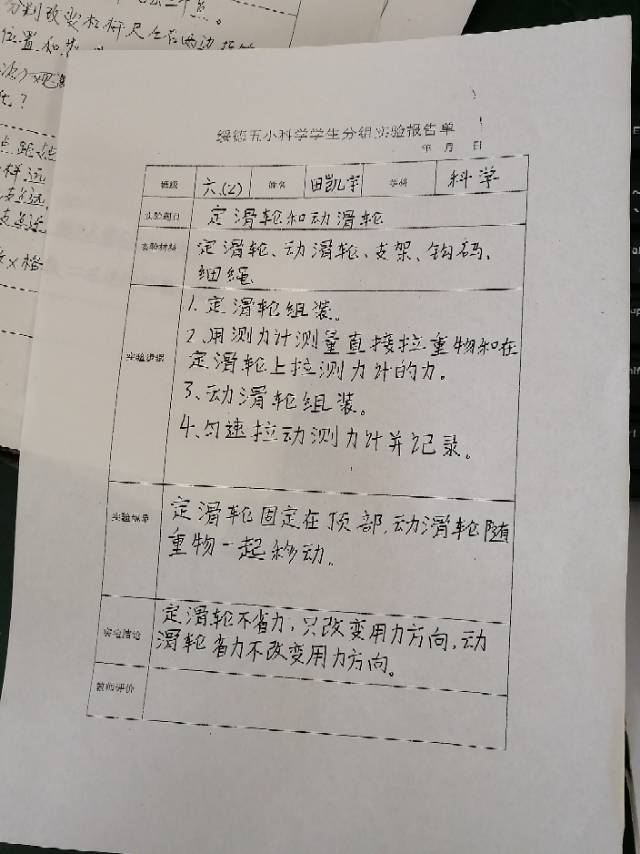 分别改变杠杆尺左右两边
位置和
点距
样远
支点远
支点近
绥德五小科学学生分组实验报告单
年 月 日
班级 六(2) 姓名 田凯宇 学科 科学
实验题目 定滑轮和动滑轮
实验材料 定滑轮、动滑轮、支架、钩码、
细绳
实验步骤 1、定滑轮组装。
2、用测力计测量直接拉重物和在
定滑轮上拉测力计的力。
3、动滑轮组装。
4、匀速拉动测力计并记录。
实验现象 定滑轮固定在顶部,动滑轮随
重物一起移动。
实验结论 定滑轮不省力,只改变用力方向,动
滑轮省力不改变用力方向。
教师评价